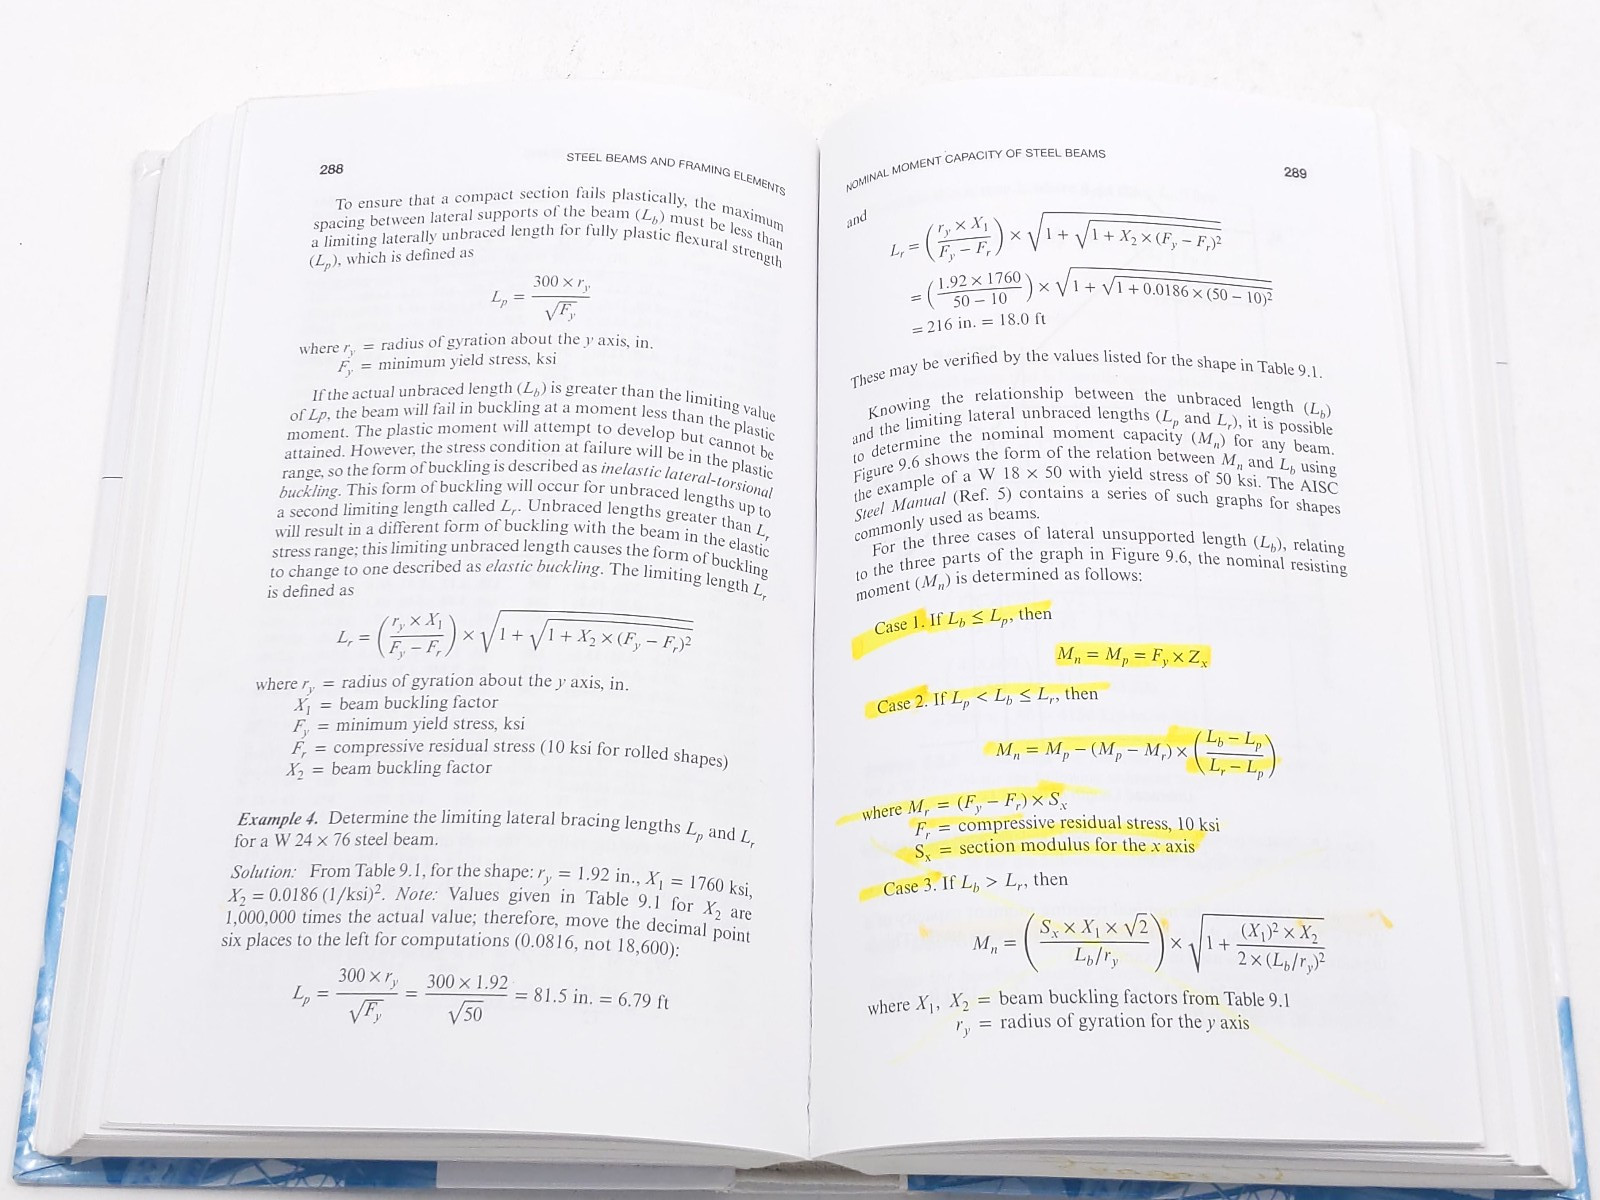 288
STEEL BEAMS AND FRAMING ELEMENTS
To ensure that a compact section fails plastically, the maximum
spacing between lateral supports of the beam (L_b) must be less than
a limiting laterally unbraced length for fully plastic flexural strength
(L_p), which is defined as
L_p = (300 × r_y) / √F_y
where r_y = radius of gyration about the y axis, in.
F_y = minimum yield stress, ksi
If the actual unbraced length (L_b) is greater than the limiting value
of Lp, the beam will fail in buckling at a moment less than the plastic
moment. The plastic moment will attempt to develop but cannot be
attained. However, the stress condition at failure will be in the plastic
range, so the form of buckling is described as inelastic lateral-torsional
buckling. This form of buckling will occur for unbraced lengths up to
a second limiting length called L_r. Unbraced lengths greater than L_r
will result in a different form of buckling with the beam in the elastic
stress range; this limiting unbraced length causes the form of buckling
to change to one described as elastic buckling. The limiting length L_r
is defined as
L_r = ((r_y × X_1) / (F_y − F_r)) × √(1 + √(1 + X_2 × (F_y − F_r)²))
where r_y = radius of gyration about the y axis, in.
X_1 = beam buckling factor
F_y = minimum yield stress, ksi
F_r = compressive residual stress (10 ksi for rolled shapes)
X_2 = beam buckling factor
Example 4. Determine the limiting lateral bracing lengths L_p and L_r
for a W 24 × 76 steel beam.
Solution: From Table 9.1, for the shape: r_y = 1.92 in., X_1 = 1760 ksi,
X_2 = 0.0186 (1/ksi)². Note: Values given in Table 9.1 for X_2 are
1,000,000 times the actual value; therefore, move the decimal point
six places to the left for computations (0.0816, not 18,600):
L_p = (300 × r_y) / √F_y = (300 × 1.92) / √50 = 81.5 in. = 6.79 ft
NOMINAL MOMENT CAPACITY OF STEEL BEAMS
289
and
L_r = ((r_y × X_1) / (F_y − F_r)) × √(1 + √(1 + X_2 × (F_y − F_r)²))
= ((1.92 × 1760) / (50 − 10)) × √(1 + √(1 + 0.0186 × (50 − 10)²))
= 216 in. = 18.0 ft
These may be verified by the values listed for the shape in Table 9.1.
Knowing the relationship between the unbraced length (L_b)
and the limiting lateral unbraced lengths (L_p and L_r), it is possible
to determine the nominal moment capacity (M_n) for any beam.
Figure 9.6 shows the form of the relation between M_n and L_b using
the example of a W 18 × 50 with yield stress of 50 ksi. The AISC
Steel Manual (Ref. 5) contains a series of such graphs for shapes
commonly used as beams.
For the three cases of lateral unsupported length (L_b), relating
to the three parts of the graph in Figure 9.6, the nominal resisting
moment (M_n) is determined as follows:
Case 1. If L_b ≤ L_p, then
M_n = M_p = F_y × Z_x
Case 2. If L_p < L_b ≤ L_r, then
M_n = M_p − (M_p − M_r) × ((L_b − L_p) / (L_r − L_p))
where M_r = (F_y − F_r) × S_x
F_r = compressive residual stress, 10 ksi
S_x = section modulus for the x axis
Case 3. If L_b > L_r, then
M_n = ((S_x × X_1 × √2) / (L_b/r_y)) × √(1 + ((X_1)² × X_2) / (2 × (L_b/r_y)²))
where X_1, X_2 = beam buckling factors from Table 9.1
r_y = radius of gyration for the y axis